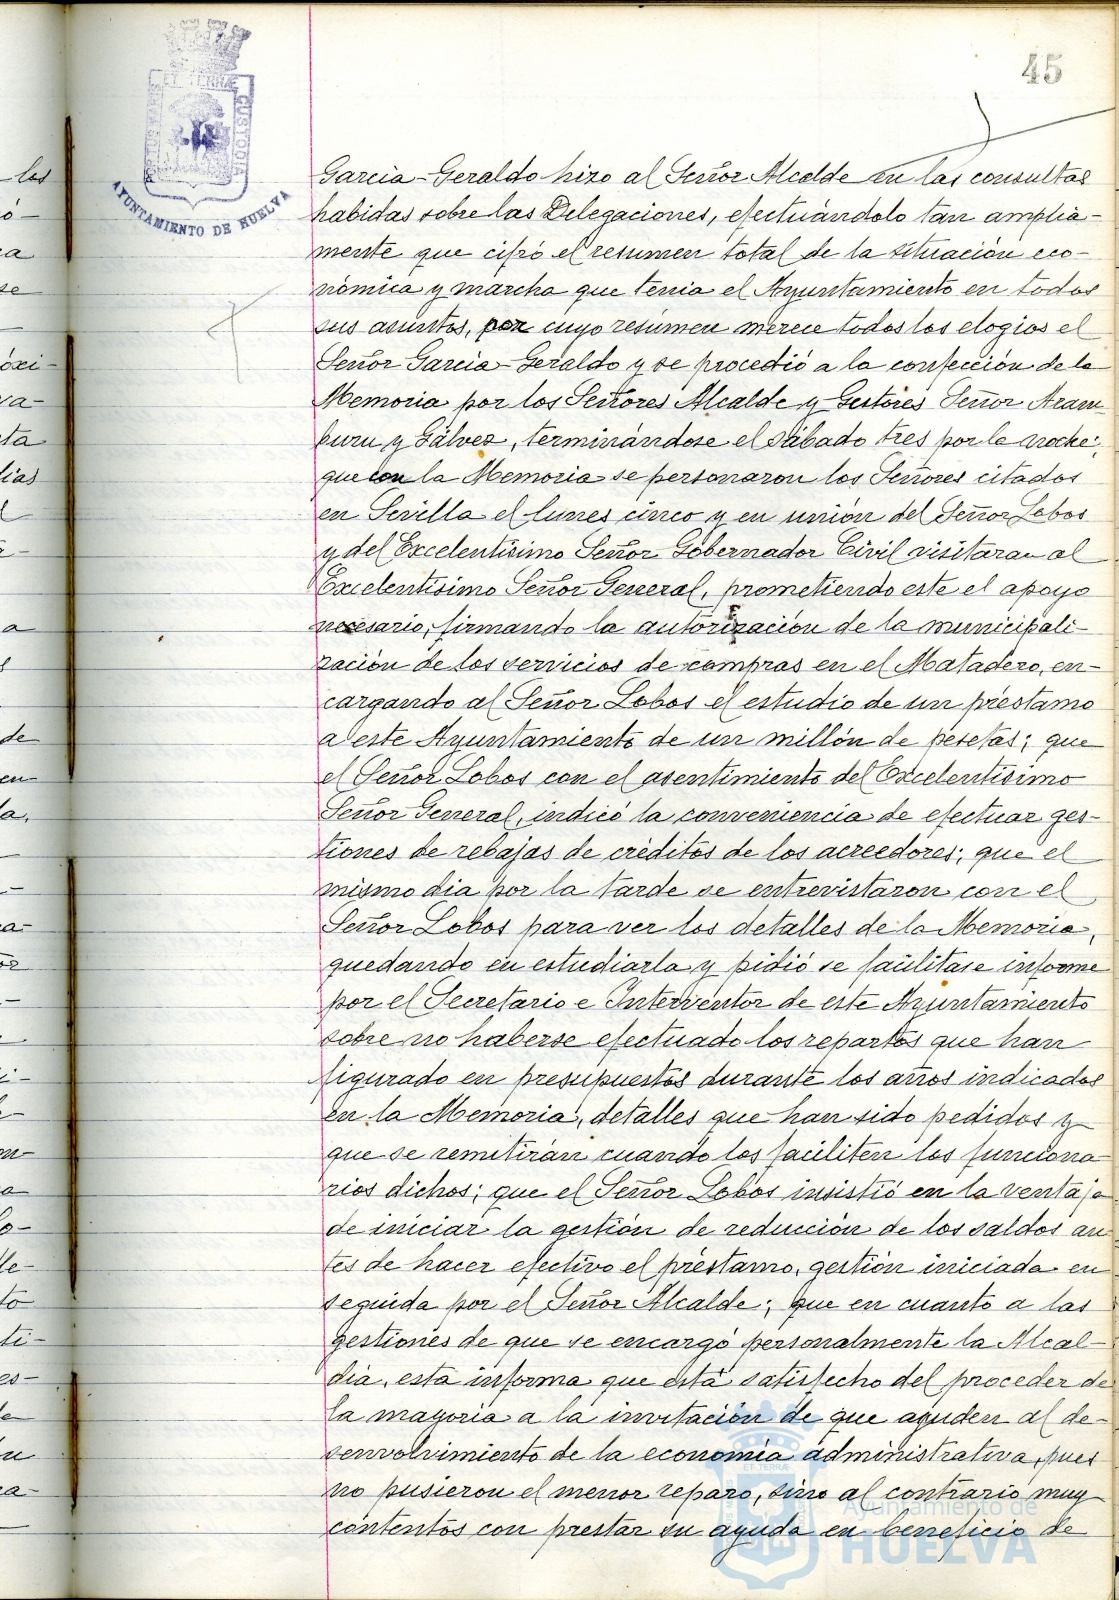 45
PORTUS MARIS ET TERRÆ CUSTODIA
AYUNTAMIENTO DE HUELVA
Garcia-Geraldo hizo al Señor Alcalde en las consultas
habidas sobre las Delegaciones, efectuándolo tan amplia-
mente que cifró el resumen total de la situación eco-
nómica y marcha que tenia el Ayuntamiento en todos
sus asuntos, por cuyo resúmen merece todos los elogios el
Señor Garcia-Geraldo y se procedió a la confección de la
Memoria por los Señores Alcalde y Gestores Señor Aram
buru y Gálvez, terminándose el sábado tres por la noche;
que con la Memoria se personaron los Señores citados
en Sevilla el lunes cinco y en unión del Señor Lobos
y del Excelentísimo Señor Gobernador Civil visitaran al
Excelentísimo Señor General, prometiendo este el apoyo
necesario, firmando la autorización de la municipali-
zación de los servicios de compras en el Matadero, en-
cargando al Señor Lobos el estudio de un préstamo
a este Ayuntamiento de un millón de pesetas; que
el Señor Lobos con el asentimiento del Excelentísimo
Señor General, indicó la conveniencia de efectuar ges-
tiones de rebajas de créditos de los acreedores; que el
mismo dia por la tarde se entrevistaron con el
Señor Lobos para ver los detalles de la Memoria,
quedando en estudiarla y pidió se facilitase informe
por el Secretario e Interventor de este Ayuntamiento
sobre no haberse efectuado los repartos que han
figurado en presupuestos durante los años indicados
en la Memoria, detalles que han sido pedidos y
que se remitirán cuando los faciliten los funciona
rios dichos; que el Señor Lobos insistió en la ventaja
de iniciar la gestión de reducción de los saldos an
tes de hacer efectivo el préstamo, gestión iniciada en
seguida por el Señor Alcalde; que en cuanto a las
gestiones de que se encargó personalmente la Alcal-
dia, esta informa que está satisfecho del proceder de
la mayoria a la invitación de que ayuden al de-
senvolvimiento de la economía administrativa, pues
no pusieron el menor reparo, sino al contrario muy
contentos con prestar su ayuda en beneficio de
Ayuntamiento de
HUELVA